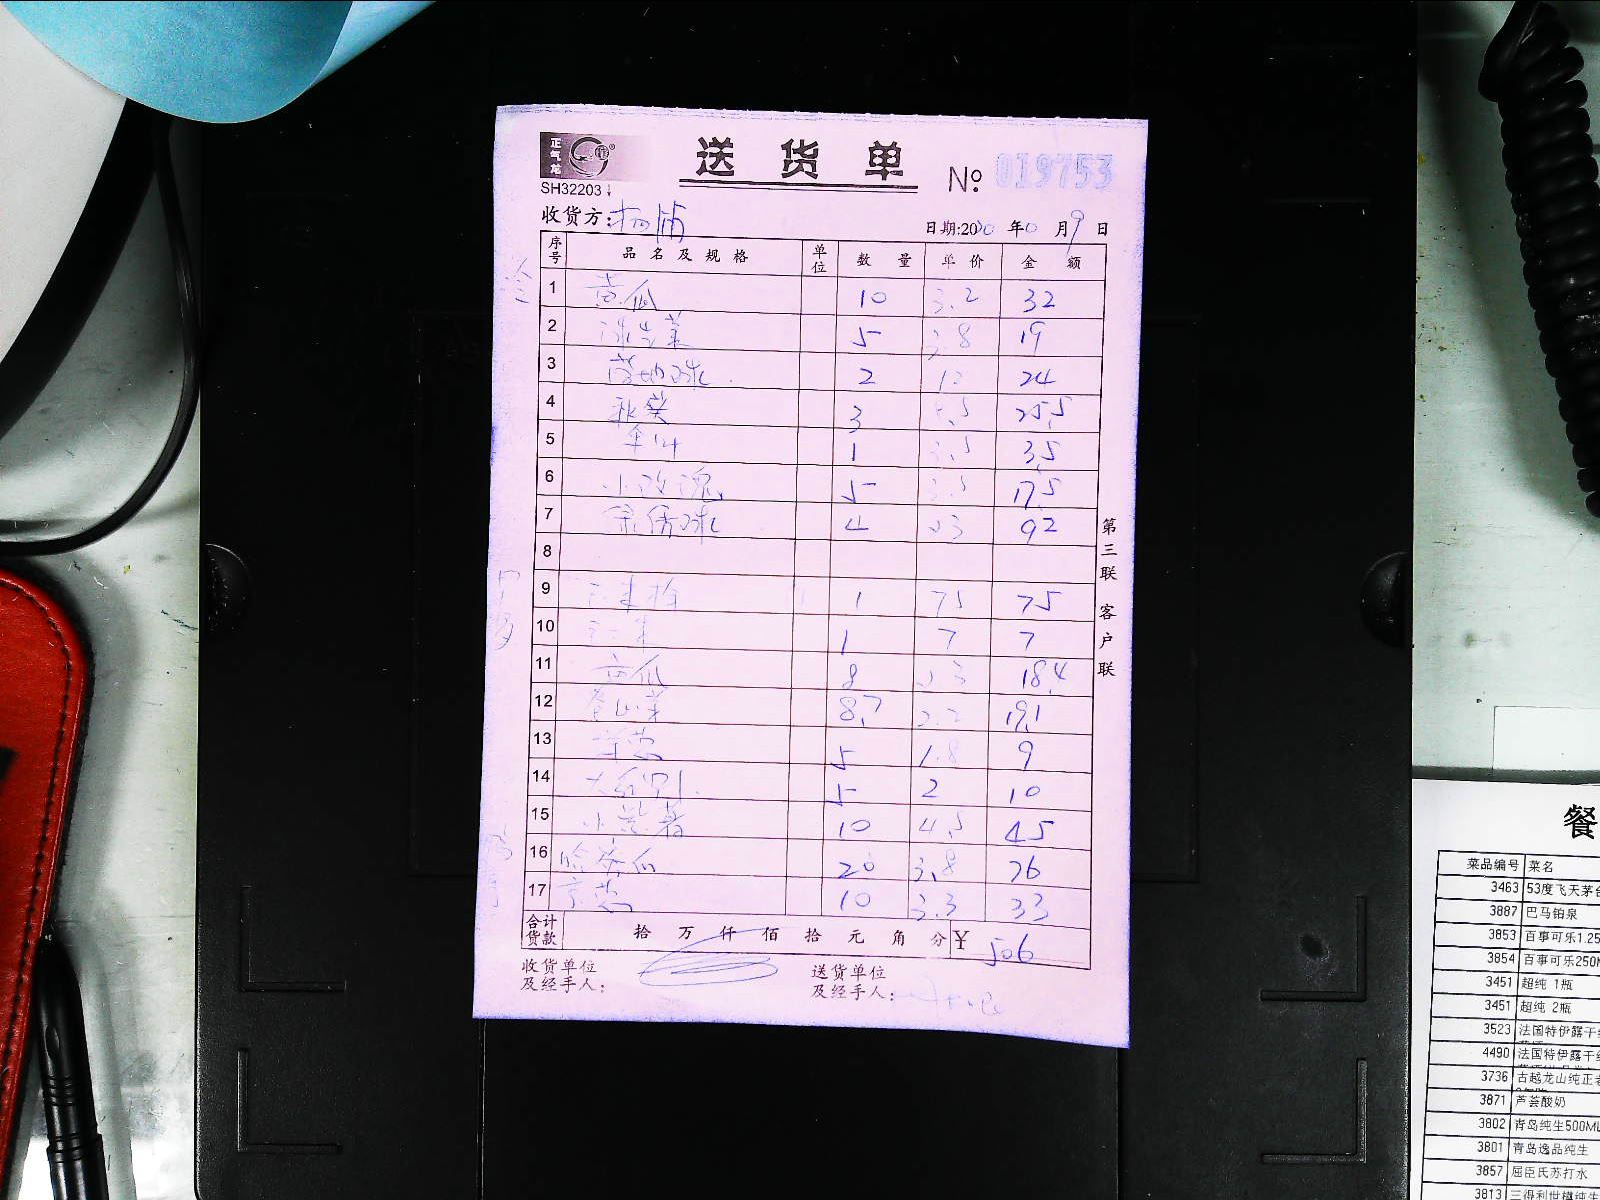 正气龙
送货单
SH32203
No. 019753
收货方: 杨浦
日期:20 年10月9日
序号 品名及规格 单位 数量 单价 金额
1 黄瓜 10 3.2 32
2 球生菜 5 3.8 19
3 2 12 24
4 秋葵 3 8.5 25.5
5 1 3.5 3.5
6 小玫瑰 5 3.5 17.5
7 4 23 92
8
9 玉米粒 1 75 75
10 1 7 7
11 8 2.3 18.4
12 卷心菜 8.7 2.2 19.1
13 洋葱 5 1.8 9
14 5 2 10
15 10 4.5 45
16 哈密瓜 20 3.8 76
17 京葱 10 3.3 33
合计货款 拾 万 仟 佰 拾 元 角 分 ¥ 506
收货单位及经手人:
送货单位及经手人:
第三联 客户联
餐
菜品编号 菜名
3463 53度飞天茅台
3887 巴马铂泉
3853 百事可乐1.25
3854 百事可乐250M
3451 超纯 1瓶
3451 超纯 2瓶
3523 法国特伊露干红
4490 法国特伊露干红
3736 古越龙山纯正
3871 芦荟酸奶
3802 青岛纯生500ML
3801 青岛逸品纯生
3857 屈臣氏苏打水
3813 三得利世博纯生